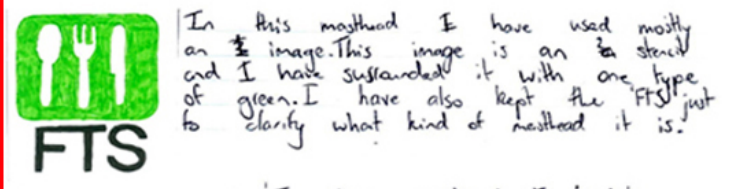 In this masthead I have used mostly
an image. This image is an stencil
and I have surrounded it with one type
of green. I have also kept the 'FTS' just
to clarify what kind of masthead it is.
FTS